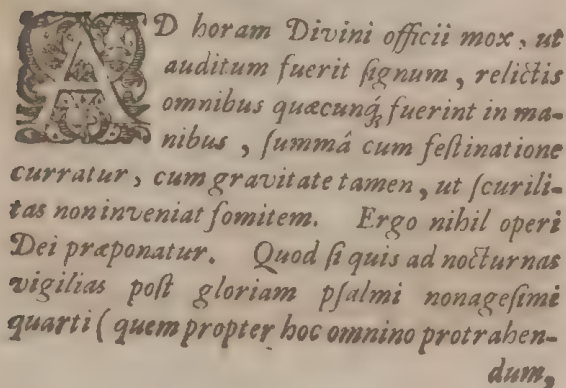 AD horam Divini officii mox, ut
auditum fuerit ſignum, relictis
omnibus quæcunq́ꝫ fuerint in ma-
nibus, ſummâ cum feſtinatione
curratur, cum gravitate tamen, ut ſcurili-
tas non inveniat fomitem. Ergo nihil operi
Dei præponatur. Quod ſi quis ad nocturnas
vigilias poſt gloriam pſalmi nonageſimi
quarti (quem propter hoc omnino protrahen-
dum,